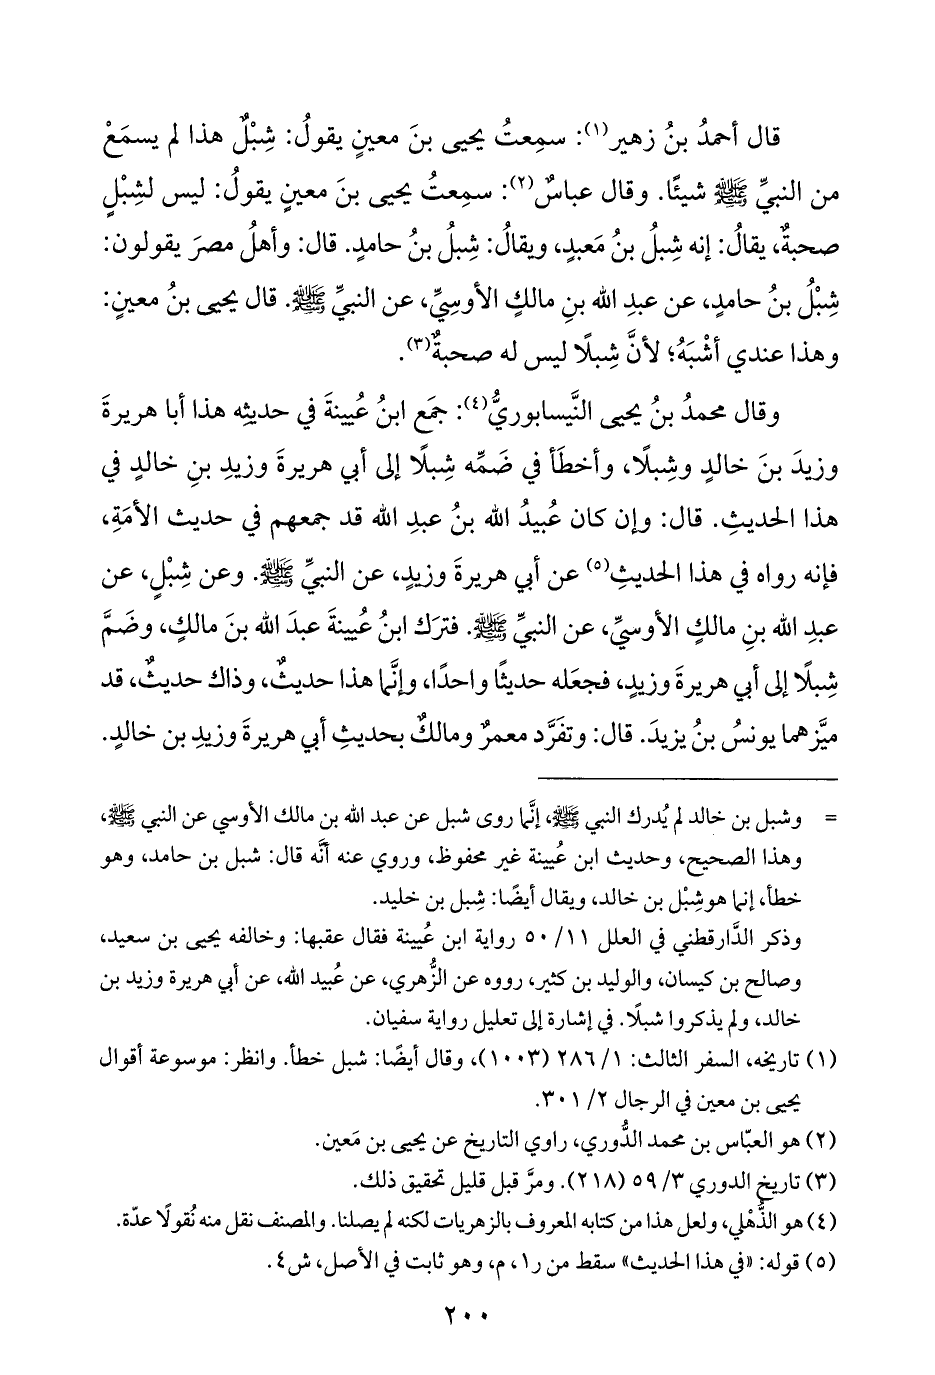 قال أحمدُ بنُ زهير(١): سمِعتُ يحيى بنَ معينٍ يقولُ: شِبْلٌ هذا لم يسمَعْ
من النبيِّ ﷺ شيئًا. وقال عباسٌ(٢): سمِعتُ يحيى بنَ معينٍ يقولُ: ليس لشِبْلٍ
صحبةٌ، يقالُ: إنه شِبلُ بنُ مَعبدٍ، ويقالُ: شِبلُ بنُ حامدٍ. قال: وأهلُ مصرَ يقولون:
شِبْلُ بنُ حامدٍ، عن عبدِ الله بنِ مالكٍ الأوسِيِّ، عن النبيِّ ﷺ. قال يحيى بنُ معينٍ:
وهذا عندي أشْبَهُ؛ لأنَّ شِبلًا ليس له صحبةٌ(٣).
وقال محمدُ بنُ يحيى النَّيسابوريُّ(٤): جمَع ابنُ عُيينةَ في حديثِه هذا أبا هريرةَ
وزيدَ بنَ خالدٍ وشِبلًا، وأخطَأ في ضَمِّه شِبلًا إلى أبي هريرةَ وزيدِ بنِ خالدٍ في
هذا الحديثِ. قال: وإن كان عُبيدُ الله بنُ عبدِ الله قد جمعهم في حديث الأمَةِ،
فإنه رواه في هذا الحديثِ(٥) عن أبي هريرةَ وزيدٍ، عن النبيِّ ﷺ. وعن شِبْلٍ، عن
عبدِ الله بنِ مالكٍ الأوسيِّ، عن النبيِّ ﷺ. فترَك ابنُ عُيينةَ عبدَ الله بنَ مالكٍ، وضَمَّ
شِبلًا إلى أبي هريرةَ وزيدٍ، فجعَله حديثًا واحدًا، وإنَّما هذا حديثٌ، وذاك حديثٌ، قد
ميَّزهما يونسُ بنُ يزيدَ. قال: وتفَرَّد معمرٌ ومالكٌ بحديثِ أبي هريرةَ وزيدِ بن خالدٍ.
= وشبل بن خالد لم يُدرك النبي ﷺ، إنَّما روى شبل عن عبد الله بن مالك الأوسي عن النبي ﷺ،
وهذا الصحيح، وحديث ابن عُيينة غير محفوظ، وروي عنه أنَّه قال: شبل بن حامد، وهو
خطأ، إنما هو شِبْل بن خالد، ويقال أيضًا: شِبل بن خليد.
وذكر الدَّارقطني في العلل ١١/ ٥٠ رواية ابن عُيينة فقال عقبها: وخالفه يحيى بن سعيد،
وصالح بن كيسان، والوليد بن كثير، رووه عن الزُّهري، عن عُبيد الله، عن أبي هريرة وزيد بن
خالد، ولم يذكروا شبلًا. في إشارة إلى تعليل رواية سفيان.
(١) تاريخه، السفر الثالث: ١/ ٢٨٦ (١٠٠٣)، وقال أيضًا: شبل خطأ. وانظر: موسوعة أقوال
يحيى بن معين في الرجال ٢/ ٣٠١.
(٢) هو العبّاس بن محمد الدُّوري، راوي التاريخ عن يحيى بن مَعين.
(٣) تاريخ الدوري ٣/ ٥٩ (٢١٨). ومرَّ قبل قليل تحقيق ذلك.
(٤) هو الذُّهْلي، ولعل هذا من كتابه المعروف بالزهريات لكنه لم يصلنا. والمصنف نقل منه نُقولًا عدّة.
(٥) قوله: «في هذا الحديث» سقط من ر١، م، وهو ثابت في الأصل، ش٤.
٢٠٠